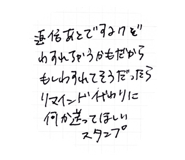 返信あとでするけど
わすれちゃうかもだから
もしわすれてそうだったら
リマインド代わりに
何か送ってほしい
スタンプ